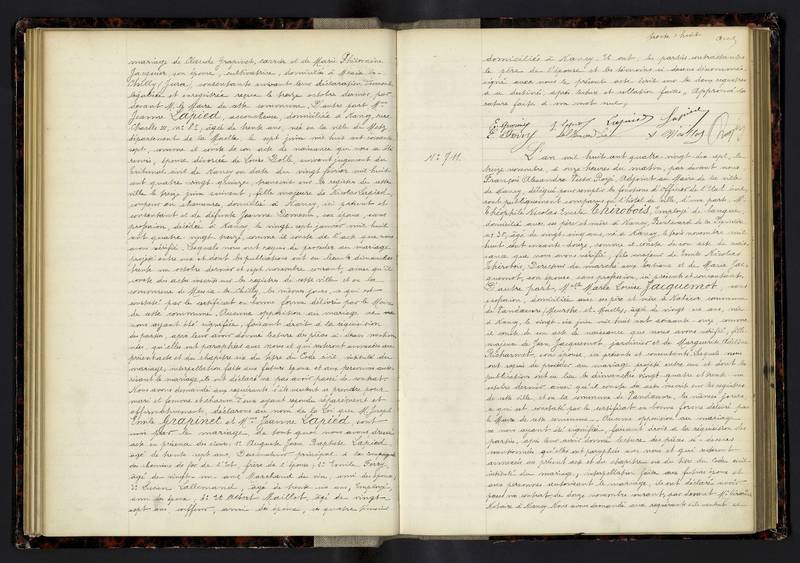 mariage de Claude Grapinet, carrier et de Marie Philomène
Jacquier, son épouse, cultivatrice, domiciliés à
Chilly (Jura) consentants suivant leur déclaration dûment
légalisée et enregistrée reçue le treize octobre dernier, par
devant M. le Maire de cette commune. D'autre part Mme
Jeanne Lapied, accoucheuse, domiciliée à Nancy, rue
Charles III, âgée de trente ans, née en la ville de Metz
département de la Moselle, le sept juin mil huit cent
sept, comme il conste de son acte de naissance qui nous a été
remis, épouse divorcée de Louis suivant jugement du
tribunal de Nancy en date du vingt février mil huit
cent quatre vingt quinze, transcrit sur le registre de cette
ville le treize juin suivant, fille majeure de Nicolas Lapied
domicilié à Nancy, ici présent et
consentant et de défunte Jeanne son épouse, sans
profession, décédée à Nancy le vingt sept janvier mil huit
cent quatre vingt treize, comme il conste de l'acte que nous
avons vérifié. Lesquels nous ont requis de procéder au mariage
projeté entre eux et dont les publications ont eu lieu le dimanche
trente un octobre dernier et sept novembre courant, ainsi qu'il
conste des actes inscrits sur les registres de cette ville et en la
commune de Chilly, les mêmes jours, à qui est
constaté par le certificat en bonne forme délivré par le Maire
de cette commune. Aucune opposition au mariage ne
nous ayant été signifiée, faisant droit à la réquisition
des parties, après leur avoir donné lecture des pièces ci dessus mention
nées, qu'elles ont paraphées avec nous et qui resteront annexées au
présent acte et du chapitre six du titre du Code civil intitulé du
mariage, interpellation faite aux futurs époux et aux personnes auto
risant le mariage, ils ont déclaré ne pas avoir passé de contrat.
Nous avons demandé aux requérants s'ils veulent se prendre pour
mari et femme et chacun d'eux ayant répondu séparément et
affirmativement, déclarons au nom de la Loi que M. Joseph
Emile Grapinet et Mme Jeanne Lapied sont
unis par le mariage, de tout quoi nous avons dressé
acte en présence des sieurs 1° Auguste Jean Baptiste Lapied
âgé de trente sept ans, principal à la compagnie
des chemins de fer de l'Est, frère de l'épouse, 2° Emile Ferry,
âgé de vingt un ans Marchand de vin, ami de l'époux,
3° Lucien Lallemand, âgé de trente six ans, Employé,
ami de l'époux, 4° et Albert Maillot, âgé de vingt
sept ans, coiffeur, ami de l'époux, ces quatre témoins
trente huit
domiciliés à Nancy. Et ont, les parties contractantes
le père de l'épouse et les témoins ci dessus dénommés,
signé avec nous le présent acte écrit sur les deux registres
à ce destinés, après lecture et collation faites. Approuvé la
rature faite d'un mot nul.
E. Ferry Lallemand Lapied Lapied
N° 711.
L'an mil huit cent quatre vingt dix sept, le
treize novembre, à onze heures du matin, par devant nous
François Alexandre Adjoint au Maire de la ville
de Nancy, délégué pour remplir les fonctions d'officier de l'Etat civil,
sont publiquement comparus en l'hôtel de ville, d'une part, M.
Théophile Nicolas Emile Thirobois, Employé de banque,
domicilié avec ses père et mère à Nancy, Boulevard de la
n° 35, âgé de vingt cinq ans, né à Nancy, le trois novembre mil
huit cent soixante douze, comme il conste de son acte de nais
sance que nous avons vérifié, fils majeur de Emile Nicolas
Thirobois, Directeur du marché aux bestiaux et de Marie Jac
quemot, son épouse, sans profession, ici présents et consentants.
D'autre part, Mlle Marie Louise Jacquemot, sans
profession, domiciliée avec ses père et mère à commune
de Vandœuvre (Meurthe et Moselle), âgée de vingt six ans, née
à Nancy, le vingt six juin mil huit cent soixante onze, comme
il conste de son acte de naissance que nous avons vérifié, fille
majeure de Jean Jacquemot jardinier et de Marguerite Adeline
son épouse, ici présents et consentants. Lesquels nous
ont requis de procéder au mariage projeté entre eux et dont les
publications ont eu lieu les dimanches vingt quatre et trente un
octobre dernier, ainsi qu'il conste des actes inscrits sur les registres
de cette ville, et en la commune de Vandœuvre, les mêmes jours,
à qui est constaté par le certificat en bonne forme délivré par
le Maire de cette commune. Aucune opposition au mariage
ne nous ayant été signifiée, faisant droit à la réquisition des
parties, après leur avoir donné lecture des pièces ci dessus
mentionnées, qu'elles ont paraphées avec nous et qui resteront
annexées au présent acte et du chapitre six du titre du Code civil
intitulé du mariage, interpellation faite aux futurs époux et
aux personnes autorisant le mariage, ils ont déclaré avoir
passé un contrat le douze novembre courant, par devant Me
Notaire à Nancy. Nous avons demandé aux requérants s'ils veulent se